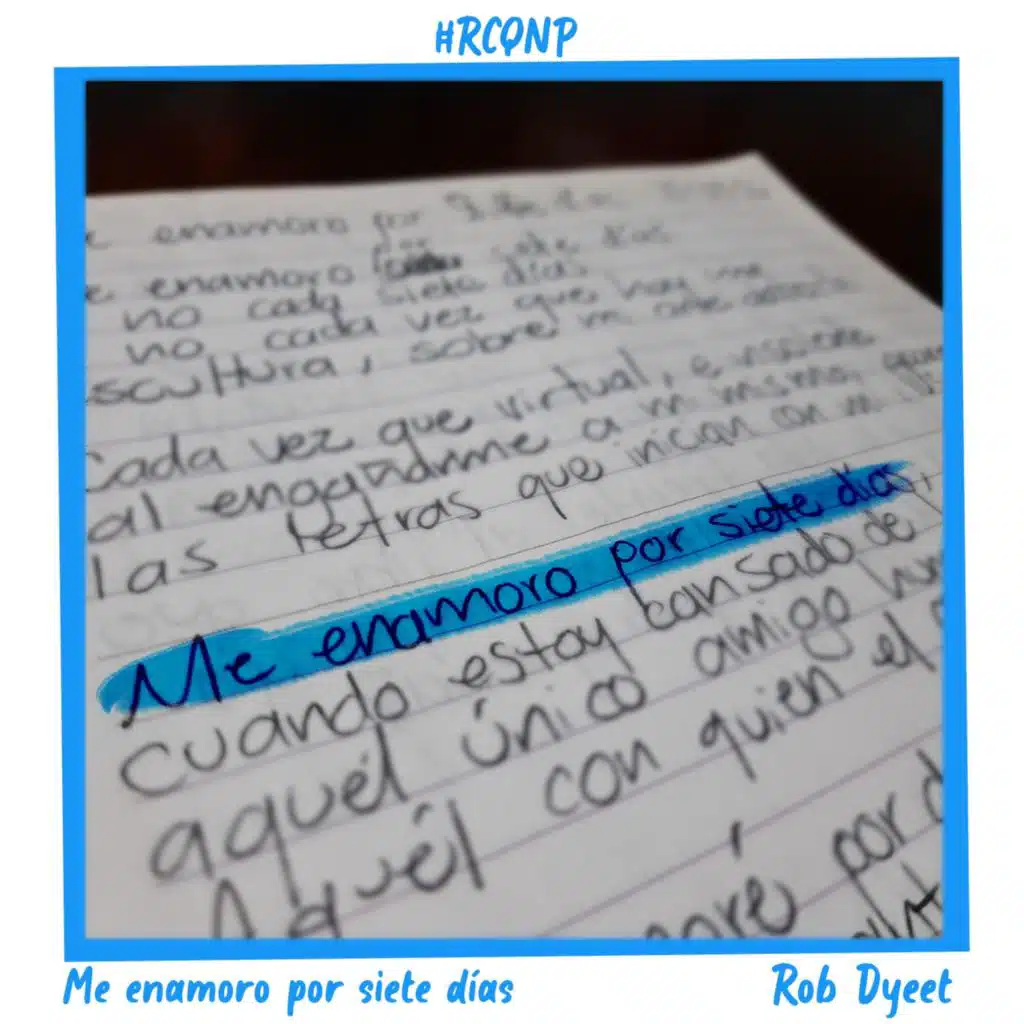 #RCQNP
enamoro por
e enamoro siete días
no cada siete días
no cada vez que hay una
escultura, sobre mi
Cada vez que virtual, e
al engañarme a mi mismo,
las letras que inician con mi
Me enamoro por siete días,
cuando estoy cansado de
aquél único amigo
Aquél con quien el
oré por
Me enamoro por siete días
Rob Dyeet